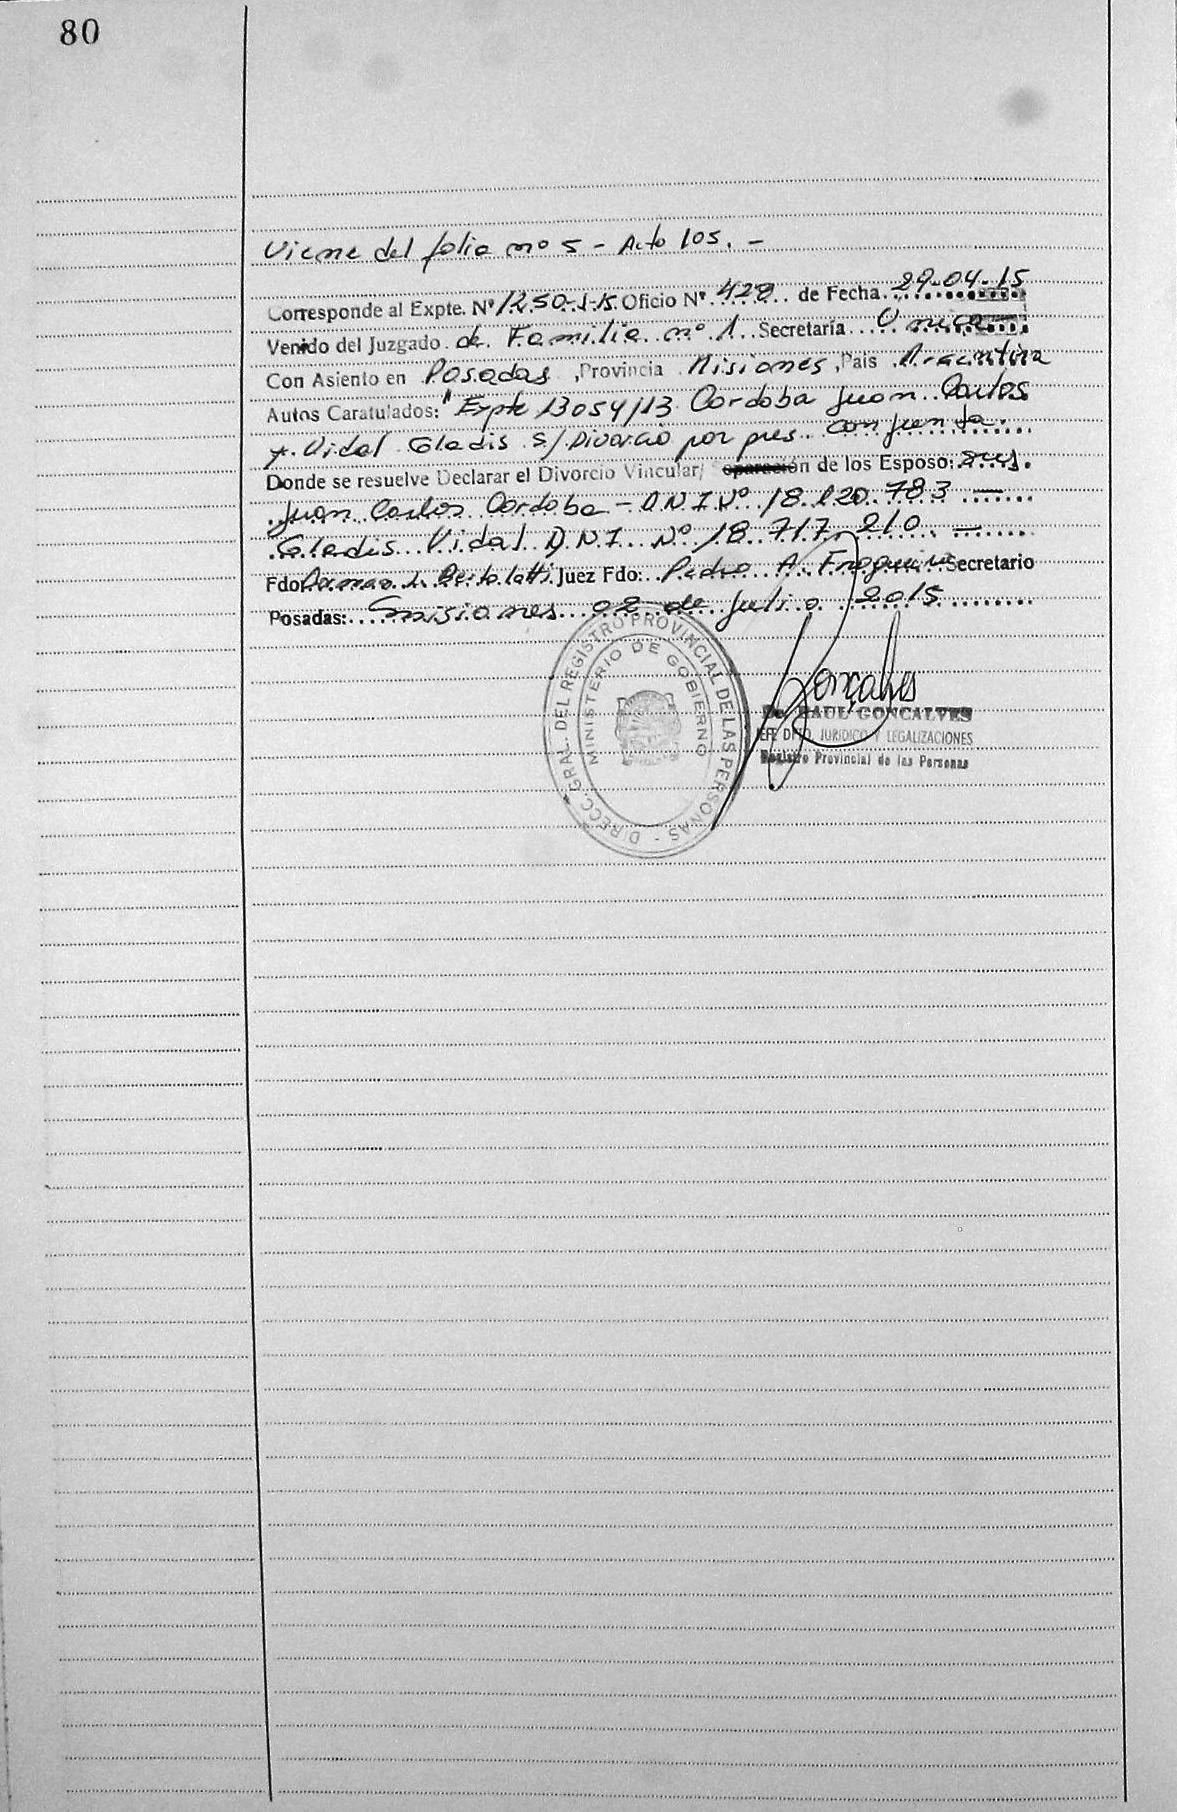 80
Viene del folio nº 5 - Acta 105. -
Corresponde al Expte. Nº 1250-J-15 Oficio Nº 428 de Fecha 29-04-15
Venido del Juzgado de Familia nº 1 Secretaría Unica
Con Asiento en Posadas, Provincia Misiones, País Argentina
Autos Caratulados: "Expte 13054/13 Cordoba Juan Carlos
y Vidal Gladis s/ Divorcio por pres. conjunta.
Donde se resuelve Declarar el Divorcio Vincular/ Separación de los Esposo: sres.
Juan Carlos Cordoba - D.N.I. Nº 18.120.783 -
Gladis Vidal D.N.I. Nº 18.717.210 -
Fdo: Juez Fdo: Pedro A. Secretario
Posadas: Misiones 02 de Julio 2015
DIRECC. GRAL. DEL REGISTRO PROVINCIAL DE LAS PERSONAS -
MINISTERIO DE GOBIERNO
Gonçalves
Dr. RAUL GONCALVES
JEFE DPTO. JURIDICO Y LEGALIZACIONES
Registro Provincial de las Personas